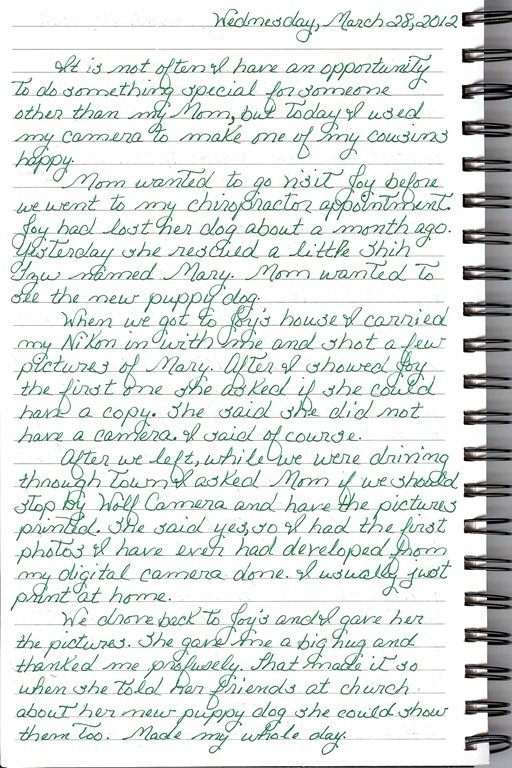 Wednesday, March 28, 2012
It is not often I have an opportunity
to do something special for someone
other than my Mom, but today I used
my camera to make one of my cousins
happy.
Mom wanted to go visit Joy before
we went to my chiropractor appointment.
Joy had lost her dog about a month ago.
Yesterday she rescued a little Shih
Tzu named Mary. Mom wanted to
see the new puppy dog.
When we got to Joy's house I carried
my Nikon in with me and shot a few
pictures of Mary. After I showed Joy
the first one she asked if she could
have a copy. She said she did not
have a camera. I said of course.
After we left, while we were driving
through town I asked Mom if we should
stop by Wolf Camera and have the pictures
printed. She said yes, so I had the first
photos I have ever had developed from
my digital camera done. I usually just
print at home.
We drove back to Joy's and I gave her
the pictures. She gave me a big hug and
thanked me profusely. That made it so
when she told her friends at church
about her new puppy dog she could show
them too. Made my whole day.